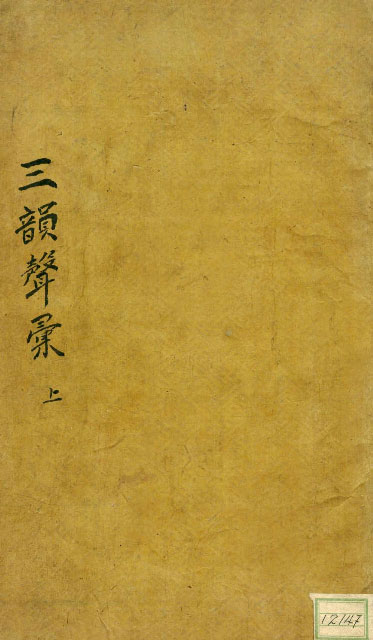 三韻聲彙 上
12147